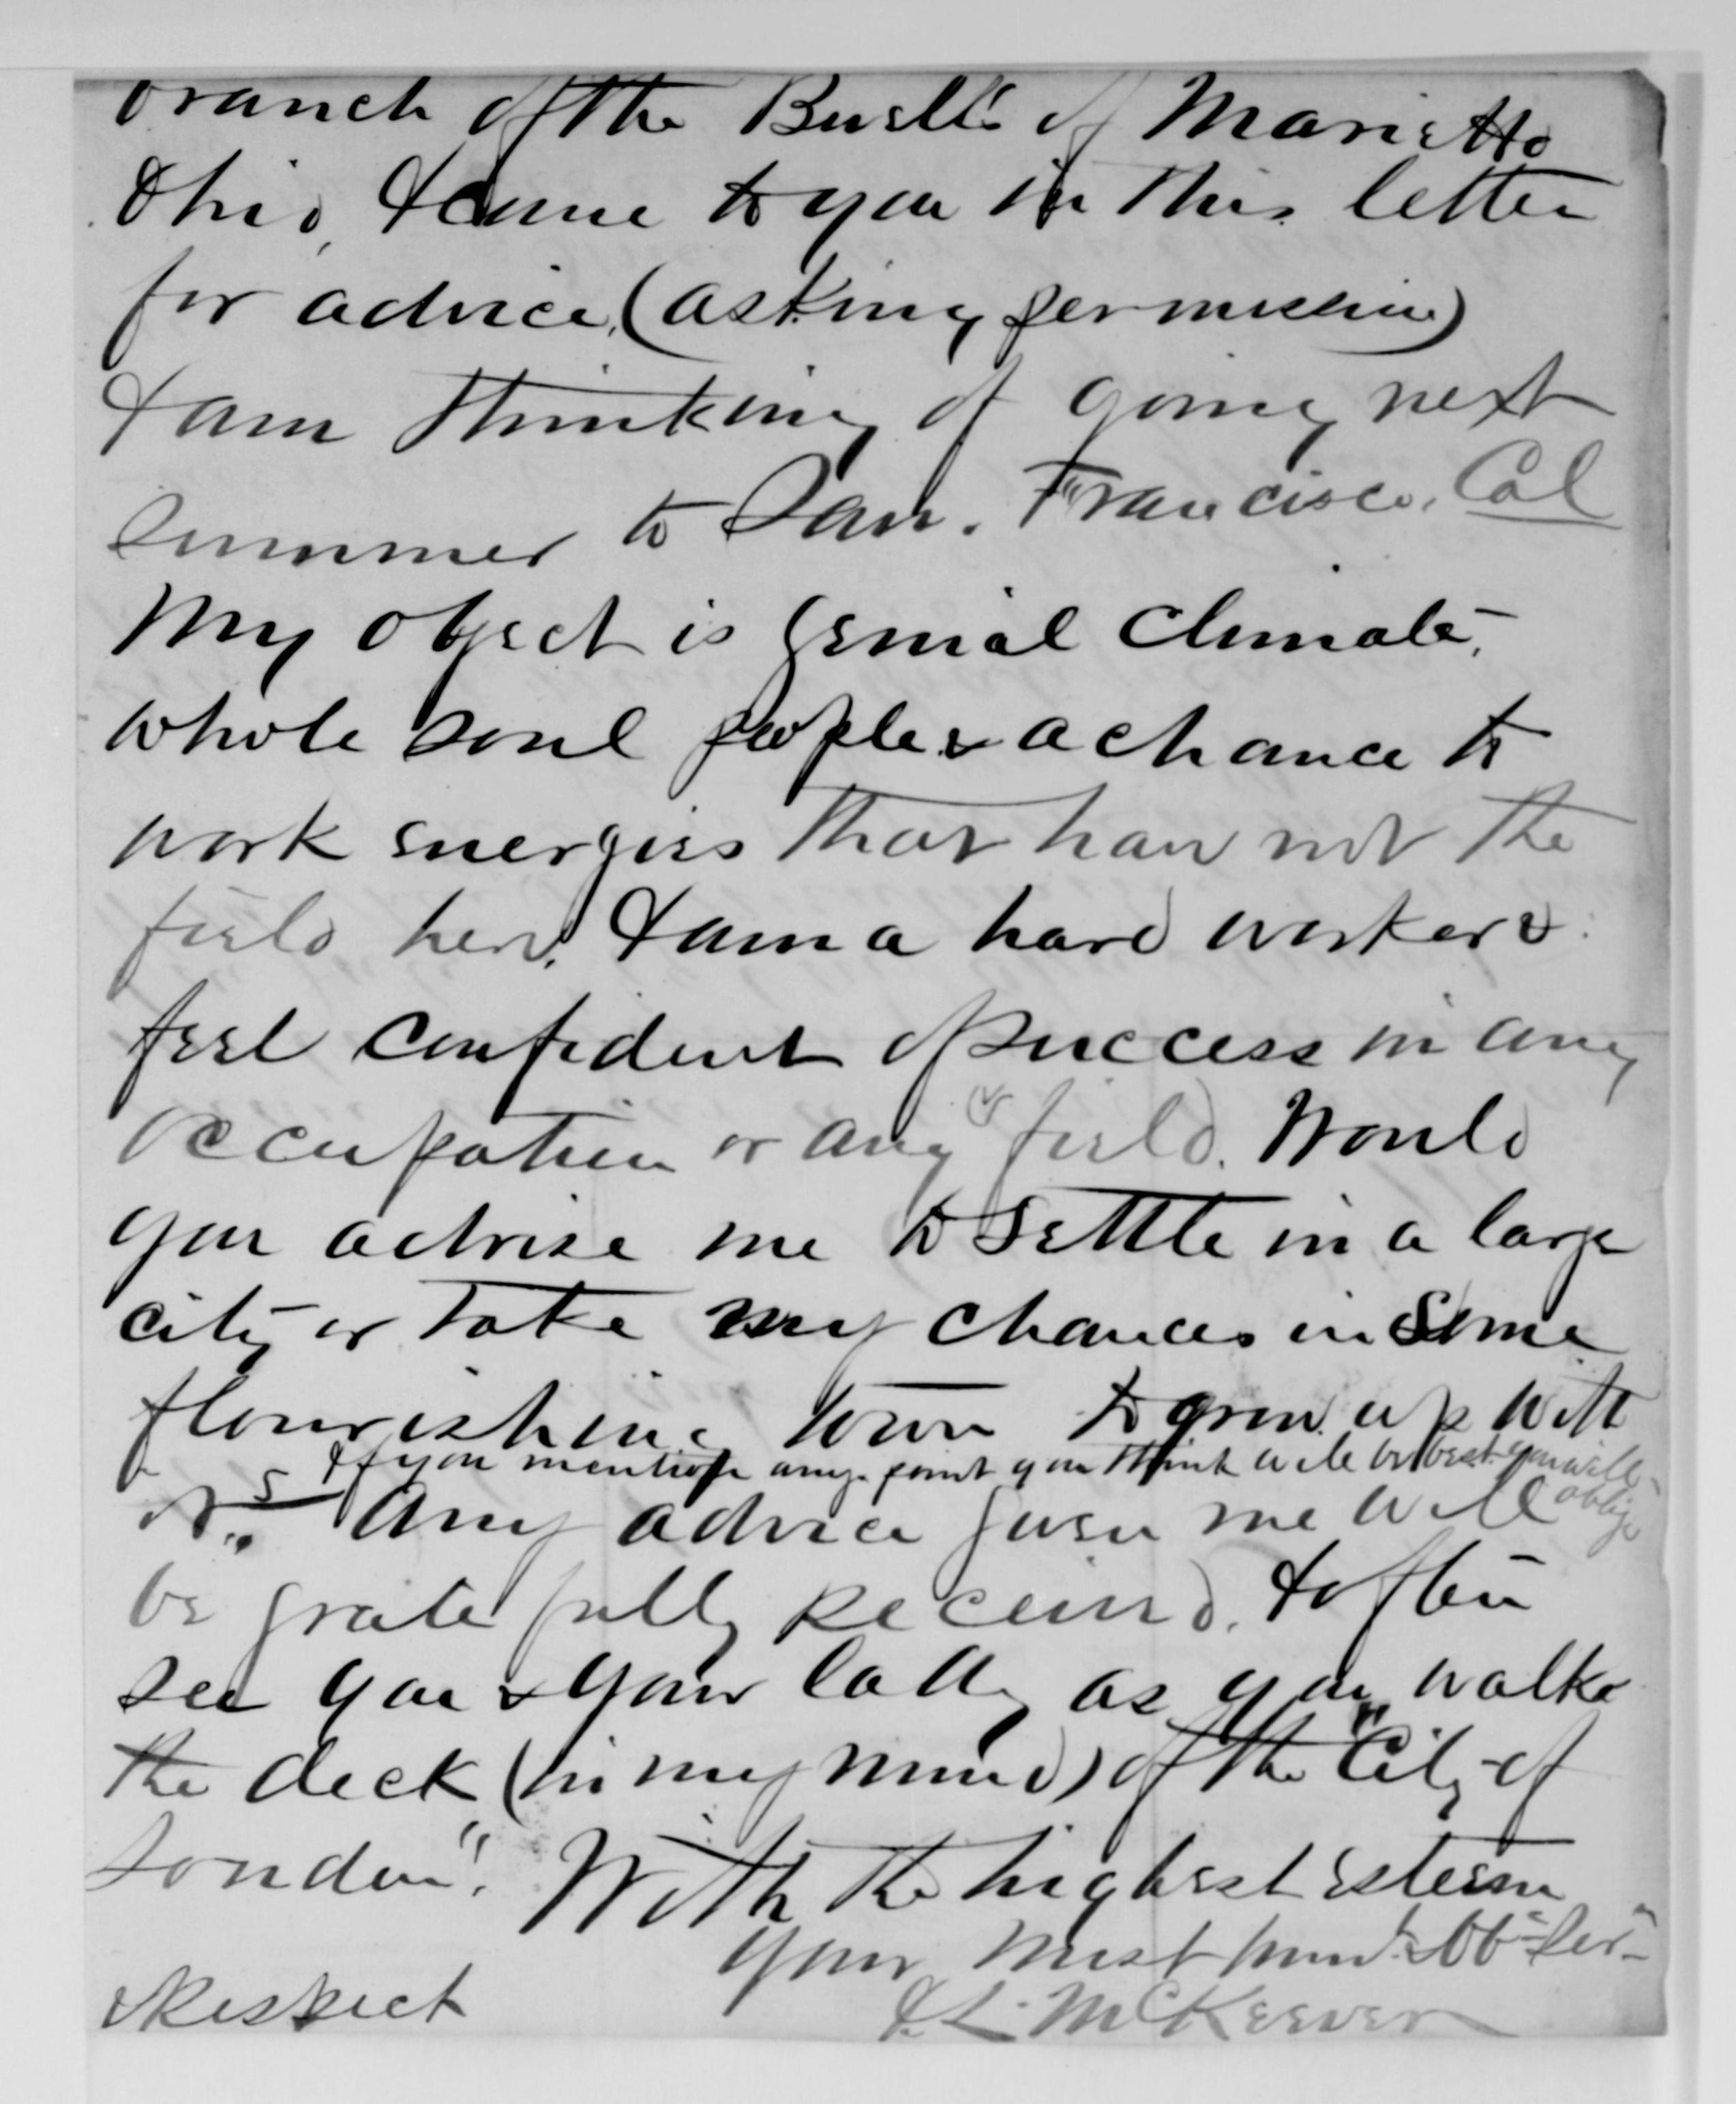 branch of the Buell's of Marietta
Ohio, I came to you in this letter
for advice, (asking permission)
I am thinking of going next
summer to San. Francisco, Cal
My object is genial climate,
whole soul people & a chance to
work energies that have not the
field here, I am a hard worker &
feel confident of success in any
occupation or any field. Would
you advise me to settle in a large
city or take my chances in some
flourishing town to grow up with
If you mention any point you think will be best you will oblige
it. Any advice given me will
be gratefully received. I often
see you & your lady as you walk
the deck (in my mind) of the "City of
London". With the highest esteem
Your most hum. Ob. Ser.
& Respect
J. L. McKeever